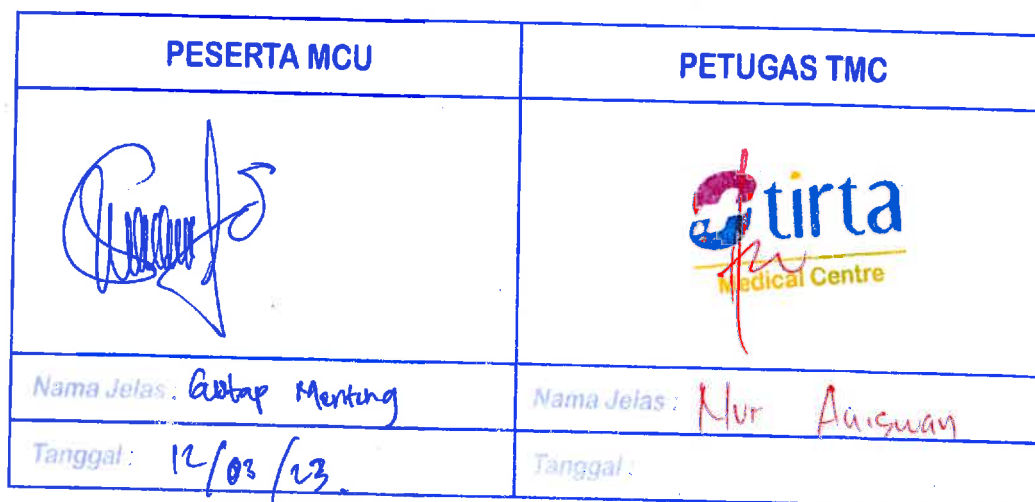 PESERTA MCU
PETUGAS TMC
tirta
Medical Centre
Nama Jelas : Menteng
Nama Jelas : Nur
Tanggal : 12/03/23.
Tanggal :